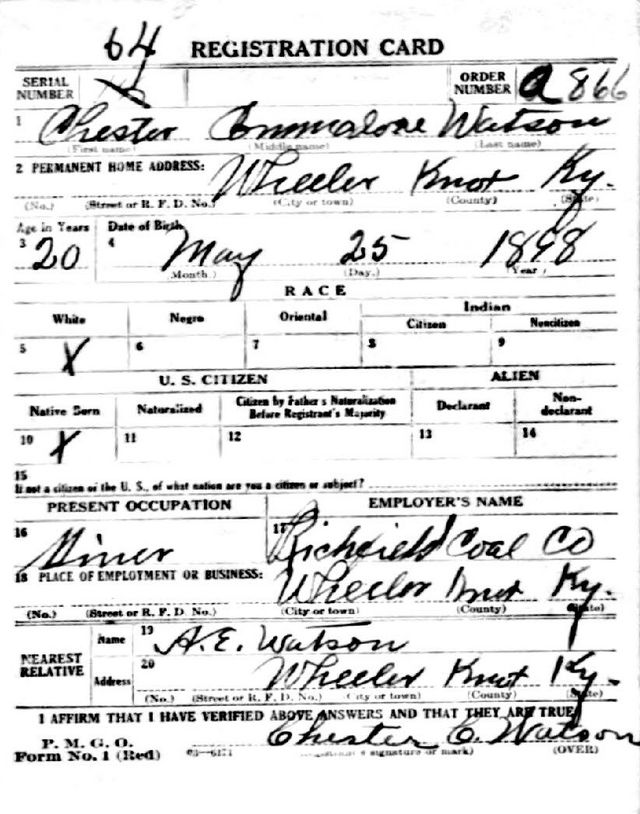 64 REGISTRATION CARD
SERIAL NUMBER ORDER NUMBER a 866
1 Chester Commalone Watson
(First name) (Middle name) (Last name)
2 PERMANENT HOME ADDRESS: Wheeler Knot Ky.
(No.) (Street or R. F. D. No.) (City or town) (County) (State)
Age in Years Date of Birth
3 20 4 May 25 1898
(Month.) (Day.) (Year.)
RACE
White Negro Oriental Indian
Citizen Noncitizen
5 X 6 7 8 9
U. S. CITIZEN ALIEN
Native Born Naturalized Citizen by Father's Naturalization Before Registrant's Majority Declarant Non-declarant
10 X 11 12 13 14
15
If not a citizen of the U. S., of what nation are you a citizen or subject?
PRESENT OCCUPATION EMPLOYER'S NAME
16 Miner 17 Richfield Coal Co
18 PLACE OF EMPLOYMENT OR BUSINESS: Wheeler Knot Ky.
(No.) (Street or R. F. D. No.) (City or town) (County) (State)
NEAREST RELATIVE Name 19 A. E. Watson
Address 20 Wheeler Knot Ky.
(No.) (Street or R. F. D. No.) (City or town) (County) (State)
I AFFIRM THAT I HAVE VERIFIED ABOVE ANSWERS AND THAT THEY ARE TRUE
P. M. G. O. Chester C. Watson
Form No. 1 (Red) 03—6171 (Registrant's signature or mark) (OVER)